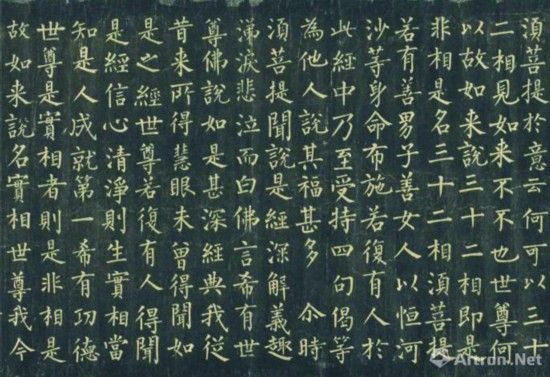 須菩提於意云何可以三十
二相見如来不不也世尊何
以故如来說三十二相即是
非相是名三十二相須菩提
若有善男子善女人以恒河
沙等身命布施若復有人於
此經中乃至受持四句偈等
為他人說其福甚多 尒時
須菩提聞說是經深解義趣
涕淚悲泣而白佛言希有世
尊佛說如是甚深經典我從
昔来所得慧眼未曾得聞如
是之經世尊若復有人得聞
是經信心清淨則生實相當
知是人成就第一希有功德
世尊是實相者則是非相是
故如来說名實相世尊我今
Artron.Net